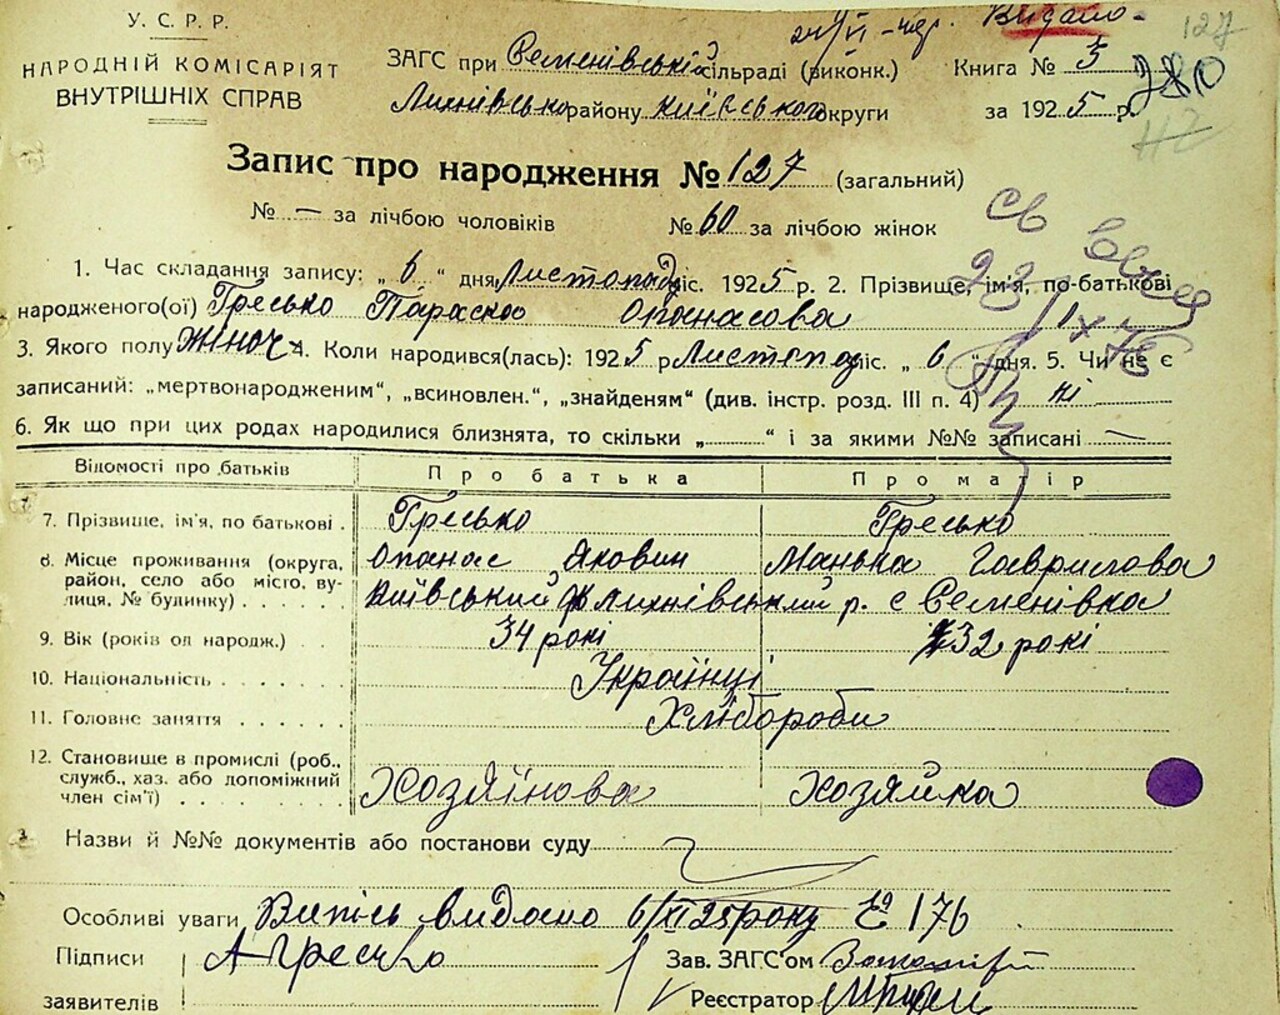 У. С. Р. Р.
НАРОДНІЙ КОМІСАРІЯТ
ВНУТРІШНІХ СПРАВ
Видано
127
ЗАГС при Семенівській сільраді (виконк.) Книга № 5
780
Лихнівсько району Київсько округи за 1925 р.
Запис про народження № 127 (загальний)
№ — за лічбою чоловіків № 60 за лічбою жінок
1. Час складання запису: „6“ дня Листопад міс. 1925 р. 2. Прізвище, ім'я, по-батькові
народженого(ої) Гресько Параска Опанасова
3. Якого полу Жіноч 4. Коли народився(лась): 1925 р Листопад міс. „6“ дня. 5. Чи не є
записаний: „мертвонародженим“, „всиновлен.“, „знайденям“ (див. інстр. розд. III п. 4) ні
6. Як що при цих родах народилися близнята, то скільки „......“ і за якими №№ записані —
Відомості про батьків Про батька Про матір
7. Прізвище, ім'я, по батькові . Гресько Гресько
Опанас Яковин Манька Гаврилова
8. Місце проживання (округа, район, село або місто, вулиця, № будинку) . . . . . Київський Лихнівський р. с Семенівка
9. Вік (років од народж.) . . 34 рокі 32 рокі
10. Національність . . . . . . Українці
11. Головне заняття . . . . . . Хлібороби
12. Становище в промислі (роб., служб., хаз. або допоміжний член сім'ї) . . . . . . . Хозяїнова Хозяйка
Назви й №№ документів або постанови суду
Особливі уваги Випісь видано 6/XI 25 року № 176
Підписи А Гресько Зав. ЗАГС'ом
заявителів Реєстратор